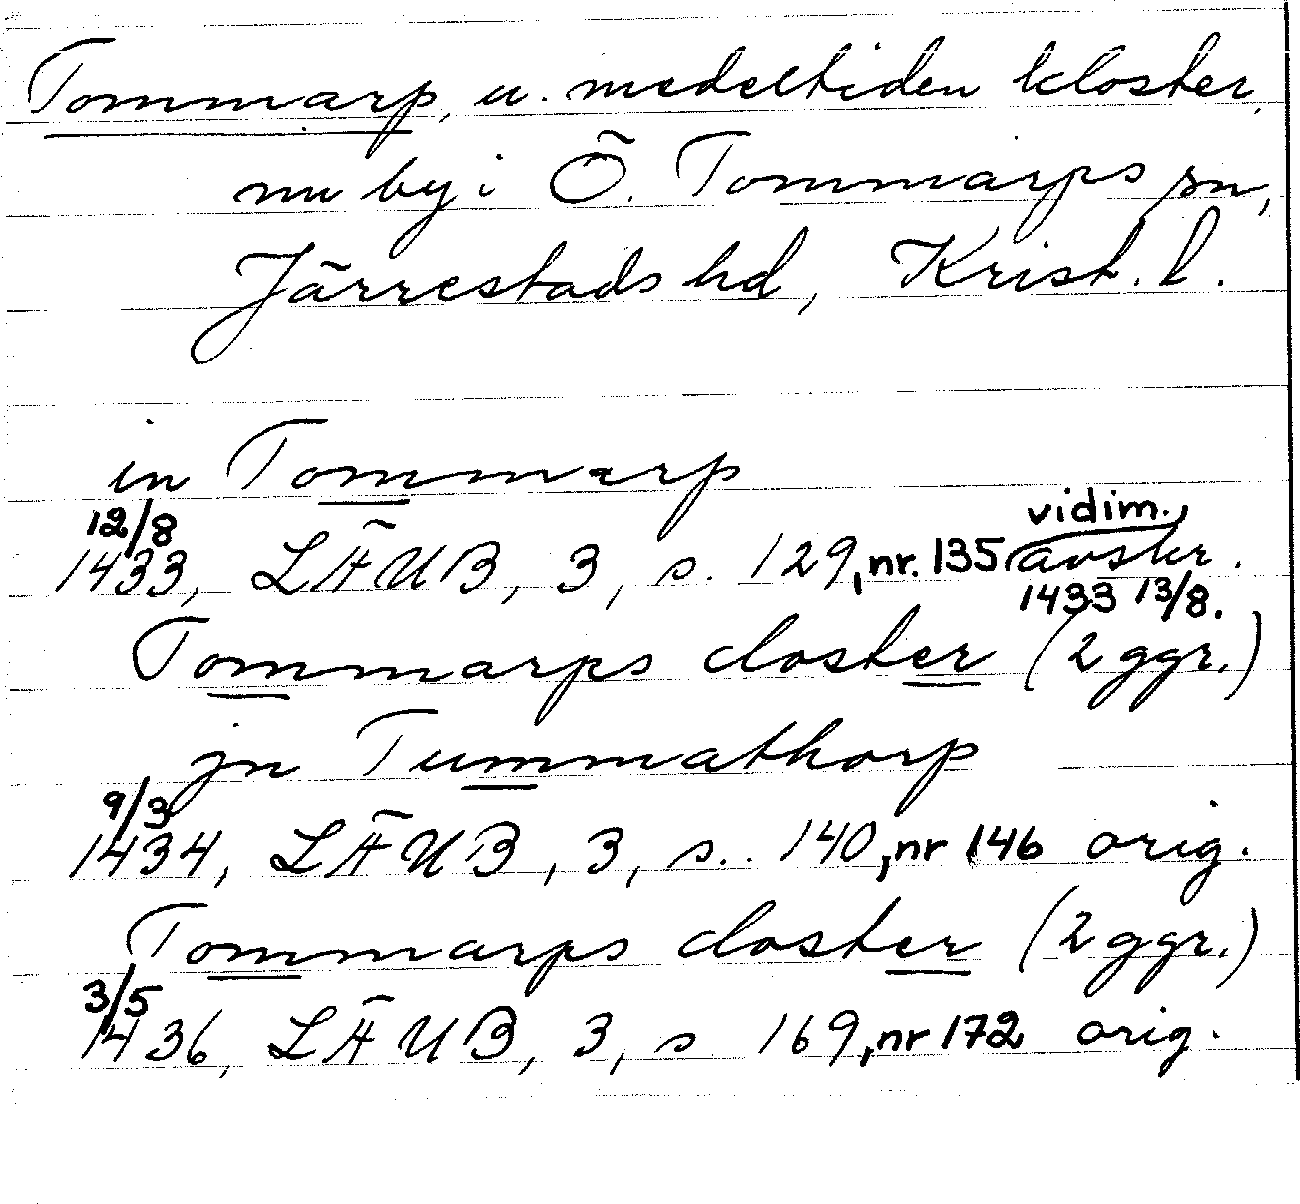 Tommarp, u. medeltiden kloster,
nu by i Ö. Tommarps sn,
Järrestads hd, Krist. l.
in Tommarp
12/8 vidim.
1433, LÄUB, 3, s. 129, nr. 135 avskr.
1433 13/8.
Tommarps closter (2 ggr.)
jn Tummathorp
9/3
1434, LÄUB, 3, s. 140, nr 146 orig.
Tommarps closter (2 ggr.)
3/5
1436, LÄUB, 3, s 169, nr 172 orig.